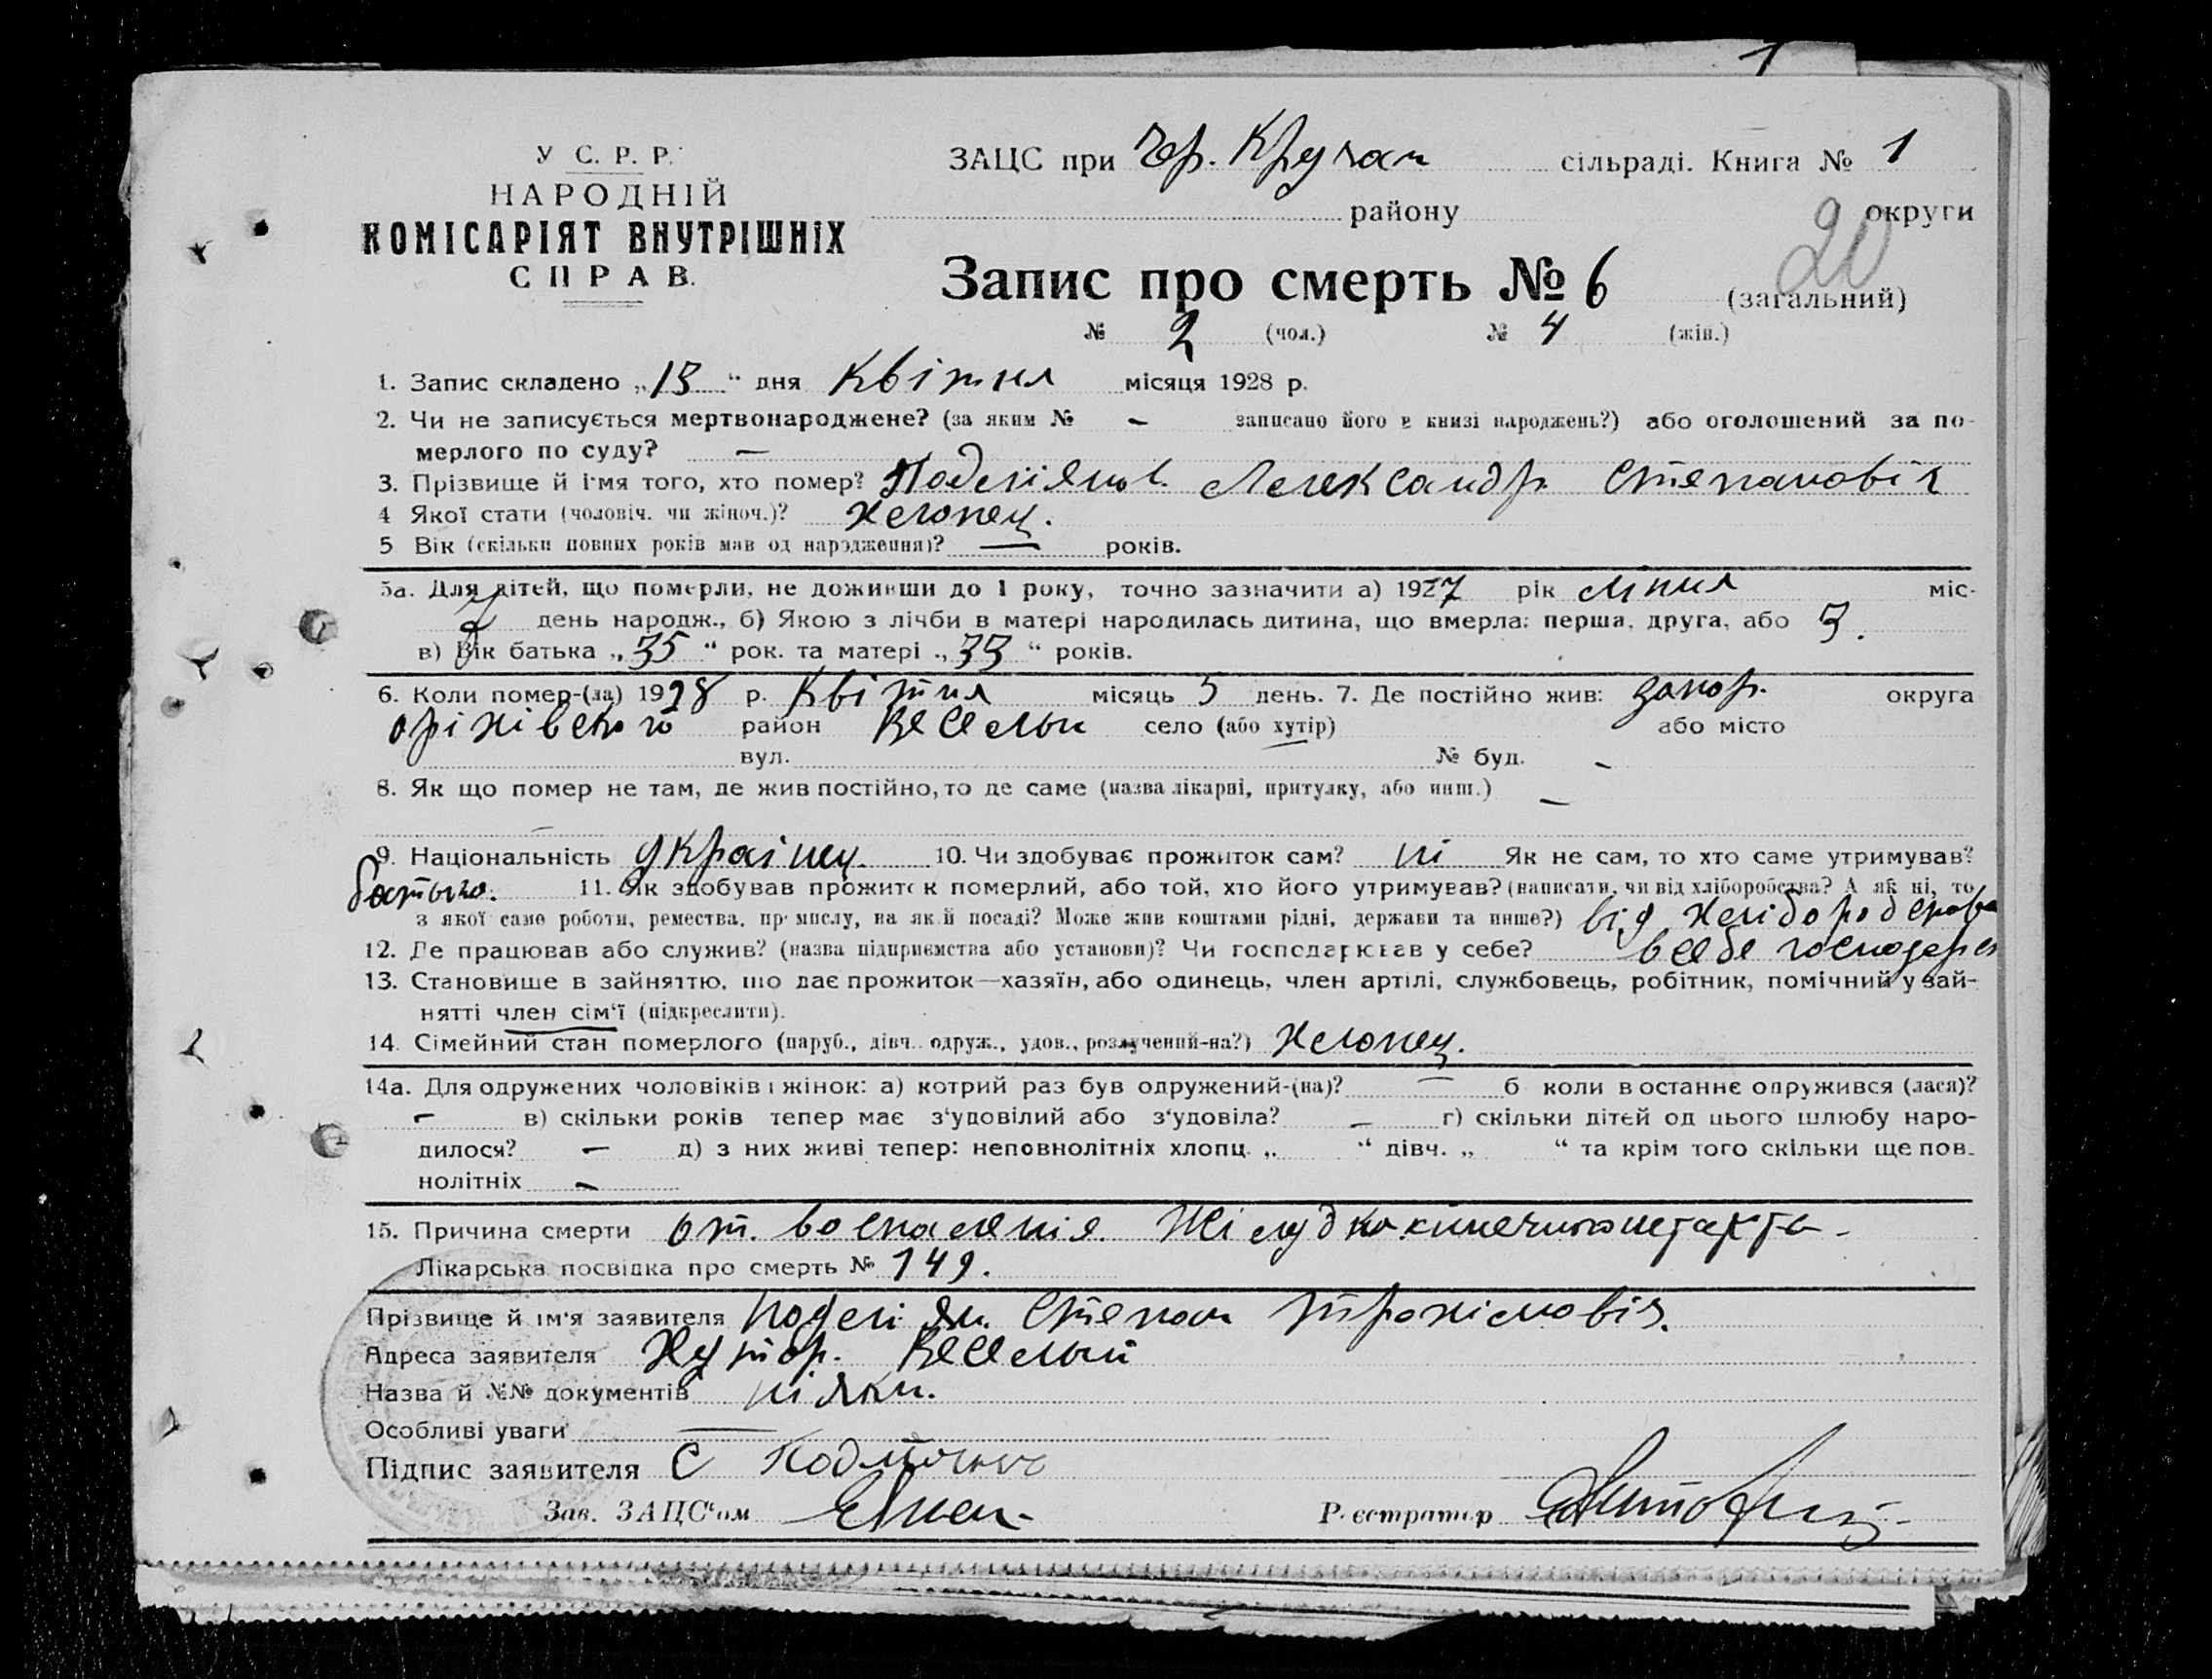 1
У С. Р. Р.
НАРОДНІЙ
КОМІСАРІЯТ ВНУТРІШНІХ
СПРАВ.
ЗАЦС при Чер. Кручан сільраді. Книга № 1
району округи
20
Запис про смерть № 6 (загальний)
№ 2 (чол.) № 4 (жін.)
1. Запис складено „13“ дня Квітня місяця 1928 р.
2. Чи не записується мертвонароджене? (за яким № – записано його в книзі народжень?) або оголошений за по-
мерлого по суду? –
3. Прізвище й ім'я того, хто помер? Александр Степановіч
4 Якої стати (чоловіч. чи жіноч.)? Хлопец.
5 Вік (скільки повних років мав од народження)? — років.
5а. Для дітей, що померли, не доживши до 1 року, точно зазначити а) 1927 рік Липня міс-
2 день народж., б) Якою з лічби в матері народилась дитина, що вмерла: перша, друга, або 3.
в) Вік батька „35“ рок. та матері „33“ років.
6. Коли помер-(ла) 1928 р. Квітня місяць 3 день. 7. Де постійно жив: Запор. округа
Оріхівського район Веселый село (або хутір) або місто
вул. № буд. –
8. Як що помер не там, де жив постійно, то де саме (назва лікарні, притулку, або инш.) –
9. Національність Украінец. 10. Чи здобуває прожиток сам? ні Як не сам, то хто саме утримував?
батько. 11. Як здобував прожиток померлий, або той, хто його утримував? (написати, чи від хліборобства? А як ні, то
з якої саме роботи, ремества, промислу, на якій посаді? Може жив коштами рідні, держави та инше?) від
12. Де працював або служив? (назва підприємства або установи)? Чи господарював у себе? в себе
13. Становище в зайняттю, що дає прожиток—хазяїн, або одинець, член артілі, службовець, робітник, помічний у зай-
нятті член сім'ї (підкреслити).
14. Сімейний стан померлого (паруб., дівч. одруж., удов., розлучений-на?) Хлопец.
14а. Для одружених чоловіків і жінок: а) котрий раз був одружений-(на)? — б коли востаннє одружився (лася)?
– в) скільки років тепер має з'удовілий або з'удовіла? – г) скільки дітей од цього шлюбу наро-
дилося? – д) з них живі тепер: неповнолітніх хлопц. „ “ дівч. „ “ та крім того скільки ще пов-
нолітніх –
15. Причина смерти от. воспаленія.
Лікарська посвідка про смерть № 149.
Прізвище й ім'я заявителя Степан Трохімовіч.
Адреса заявителя Хутор. Веселый
Назва й №№ документів ніяки.
Особливі уваги —
Підпис заявителя С
Зав. ЗАЦС'ом
Реєстратор